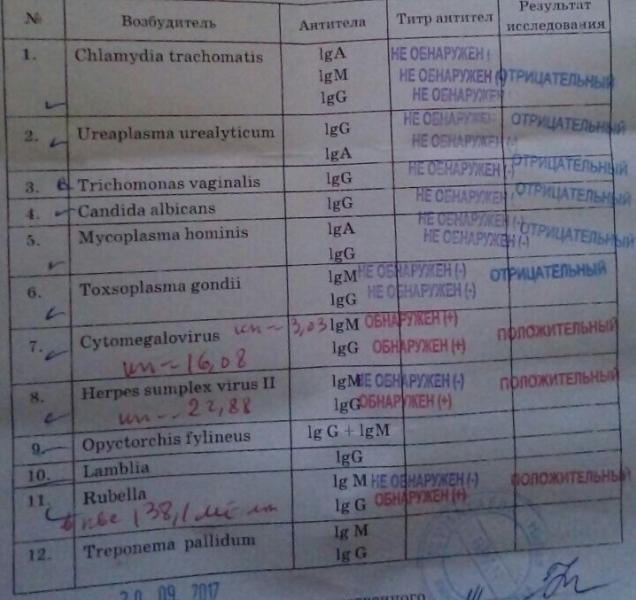 № Возбудитель Антитела Титр антител Результат исследования
1. Chlamydia trachomatis lgA НЕ ОБНАРУЖЕН (
lgM НЕ ОБНАРУЖЕН ( ОТРИЦАТЕЛЬНЫЙ
lgG НЕ ОБНАРУЖЕН
2. Ureaplasma urealyticum lgG НЕ ОБНАРУЖЕН ОТРИЦАТЕЛЬНЫЙ
lgA НЕ ОБНАРУЖЕН (-)
3. Trichomonas vaginalis lgG НЕ ОБНАРУЖЕН (-) ОТРИЦАТЕЛЬНЫЙ
4. Candida albicans lgG НЕ ОБНАРУЖЕН (-) ОТРИЦАТЕЛЬНЫЙ
5. Mycoplasma hominis lgA НЕ ОБНАРУЖЕН (-) ОТРИЦАТЕЛЬНЫЙ
lgG НЕ ОБНАРУЖЕН (-)
6. Toxsoplasma gondii lgM НЕ ОБНАРУЖЕН (-) ОТРИЦАТЕЛЬНЫЙ
lgG НЕ ОБНАРУЖЕН (-)
7. Cytomegalovirus кп ~ 3,03 lgM ОБНАРУЖЕН (+) ПОЛОЖИТЕЛЬНЫЙ
кп ~ 16,08 lgG ОБНАРУЖЕН (+)
8. Herpes sumplex virus II lgM НЕ ОБНАРУЖЕН (-) ПОЛОЖИТЕЛЬНЫЙ
кп ~ 22,88 lgG ОБНАРУЖЕН (+)
9. Opyctorchis fylineus lg G + lgM
10. Lamblia lgG
11. Rubella lg M НЕ ОБНАРУЖЕН (-) ПОЛОЖИТЕЛЬНЫЙ
138,1 lg G ОБНАРУЖЕН (+)
12. Treponema pallidum lg M
lg G
20 09 2017